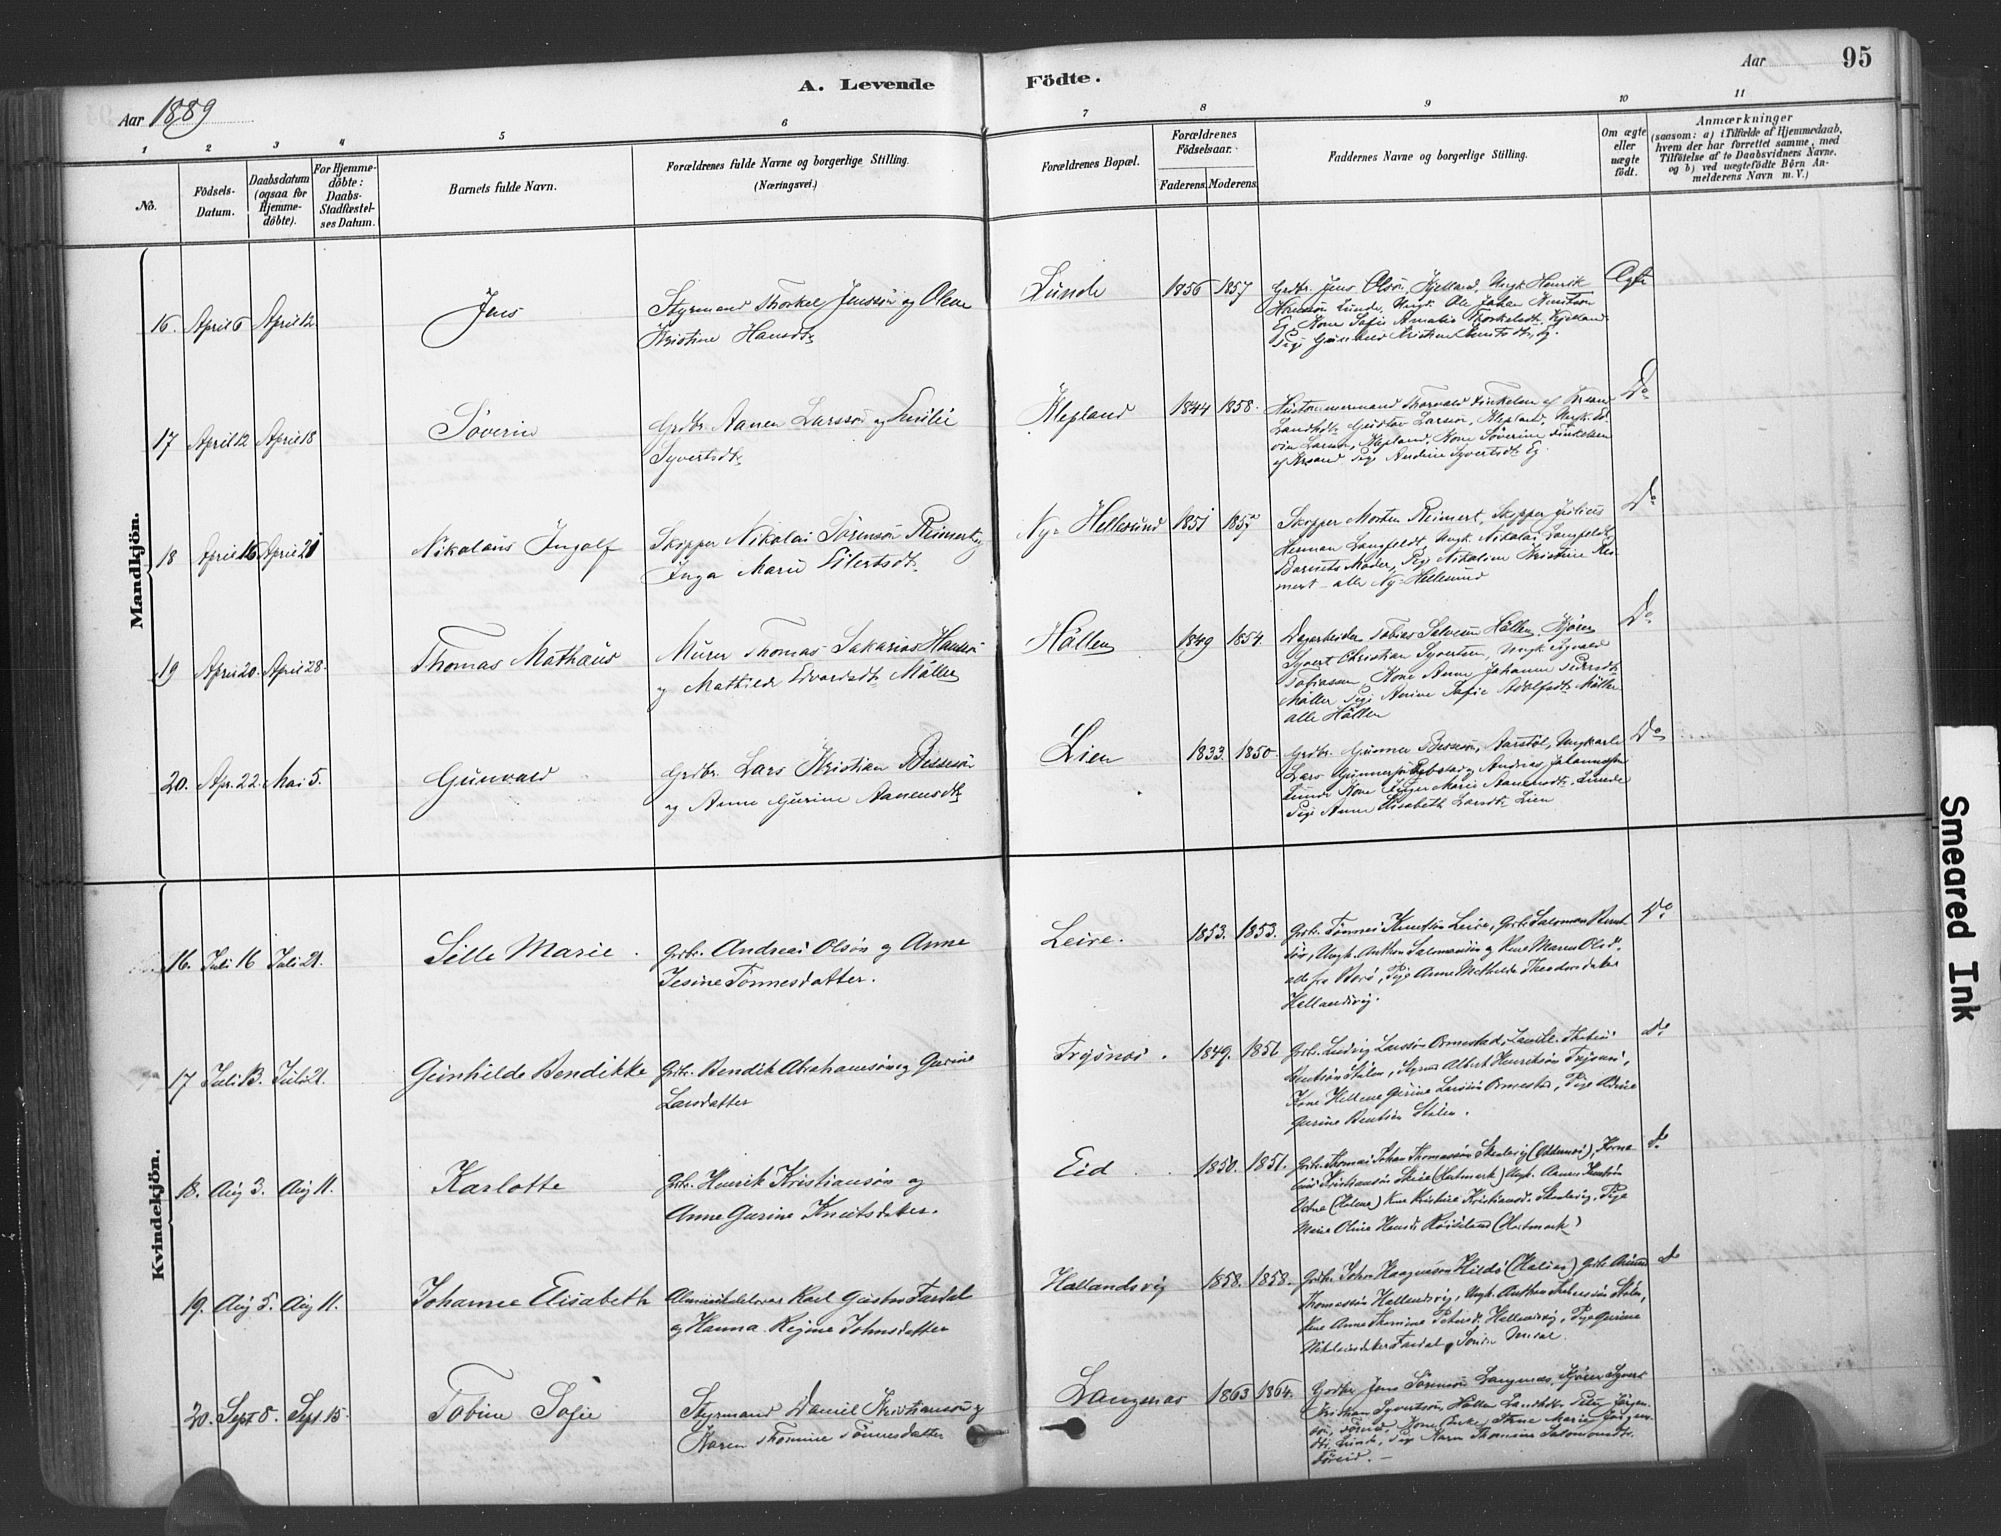 A. Levende Födte.
Aar 1889
Aar 95
1 2 3 4 5 6 7 8 9 10 11
No.
Födsels-Datum.
Daabsdatum (ogsaa for Hjemme-döbte).
For Hjemme-döbte: Daabs-Stadfæstel-ses Datum.
Barnets fulde Navn.
Forældrenes fulde Navne og borgerlige Stilling.
(Næringsvei.)
Forældrenes Bopæl.
Forældrenes Födselsaar.
Faderens. Moderens.
Faddernes Navne og borgerlige Stilling.
Om ægte eller uægte födt.
Anmærkninger
(saasom: a) i Tilfælde af Hjemmedaab,
hvem der har forrettet samme, med
Tilföielse af to Daabsvidners Navne.
og b) ved uægtefödte Börn An-
melderens Navn m. V.)
Mandkjön.
16. April 6 April 12 Jens
Styrmand Thorkel Jenssön og Olene
Kristine Hansdtr
Lunde 1856 1857
Grdbr. Jens Olsön, Kjelland, Ungk. Henrik
Lunde, Ungk. Ole Johan Knutson
Eg, Kone Sofie Amalie Thorkelsdtr, Kjelland
Pige Gunhild Kristine Knutsdtr, Eg.
Ægte
17 April 12 April 18 Söverin
Grdbr. Aanen Larssön og Emilie
Syvertsdtr
Klepland 1844 1858.
Hustømmermand Thorvald Finkelsen af Krsand
Landhdlr Gustav Larsön, Klepland, Ungk.
Larsön, Klepland, Kone Söverine Finkelsen
af Krsand, Pige Andrine Syvertsdtr Eg.
Do
18 April 16 April 21 Nikolaus Ingolf
Skipper Nikolai Sörensön Reimert og
Inga Marie Eilertsdtr
Ny-Hellesund 1851 1857
Skipper Morten Reimert, Skipper Julius
Herman Langfeldt, Ungk. Nikolai Langfeldt,
Barnets Moder, Pige Nikoline Kristine Rei-
mert - alle Ny-Hellesund
Do
19 April 20. April 28. Thomas Mathæus
Murer Thomas Sakarias Hansön
og Mathilde Edvardsdtr Möller
Hållen 1849 1854.
Dagarbeider Tobias Salvesen Hållen, Kjören
Syvert Christian Syvertsen, Ungk.
Tobiassen, Kone Anne Johanne Pedersdtr
Möller, Pige Amine Sofie Adolfsdtr Möller
alle Hållen
Do
20. Apr. 22. Mai 5. Gunvald
Grdbr. Lars Kristian Bessesön
og Anne Gurine Aanensdtr
Lien 1833. 1850.
Grdbr. Gunner Bessesön, Aarstöl, Ungkarle
Lars Gunnersön og Andreas Johannessen
Lunde, Kone Inger Marie Aanensdtr, Linnede
Pige Anne Elisabeth Larsdtr Lien
Do
Kvindekjön.
16. Juli 16 Juli 21. Sille Marie.
Grbr. Andreas Olsön og Anne
Jesine Tönnesdatter.
Leire. 1853. 1853.
Grbr. Tönnes Knutsön Leire, Grbr. Salomon Bernt-
sön, Ungk. Anthon Salomonsön og Kone Maren Olsdr.
alle fra Borö, Pige Anne Mathilde Theodorsdatter
Hellandsvig.
Do
17 Juli 13. Juli 21. Gunhilde Bendikke
Grbr. Bendik Abrahamsön og Gurine
Larsdatter
Trysnæs. 1849. 1851
Grbr. Ludvig Larssön Ormestad, Landh.
Berntsön Stålen, Styrmd Albert Henriksön Trysnæs,
Kone Hellene Gurine Larssön Ormestad, Pige
Gurine Berntsen Stålen.
do
18. Aug 3. Aug 11. Karlotte
Grbr. Henrik Kristiansön og
Anne Gurine Knutsdatter.
Eid. 1850. 1851.
Grbr. Thomas Johan Thomassön Stenlsvig (Oddernæs), Korne-
lius Kristiansön (Hartmark) Ungk. Aanen Knutsön
(Halsaa) Kone Kristine Kristiansd. Stenlsvig, Pige
Marie Oline Hansdr (Hartmark)
do
19. Aug 5. Aug 11. Johanne Elisabeth
Karl Gustav Fardal
og Hanna Regine Johnsdatter
Hallandsvig 1858. 1858.
Grbr. John Haagensön Kildö (Halsaa) Grbr.
Thomassön Hallandsvig, Ungk. Anthon Stålen,
Kone Anne Thomine Petersd. Hallandsvig, Pige Gurine
Nikolaisdatter Fardal
do
20. Sept. 8. Sept. 15. Tobine Sofie
Styrmand Daniel Kristiansön og
Karen Thomine Tönnesdatter
Langenæs 1863 1864.
Grdbr. Jens Sörensön Langenæs, Kjören Syvert
Kristian Syvertsön, Hållen, Landhdlr. Peter Jörgen-
sön, Kone Stine Marie Jörgens-
dtr, Lunde, Pige Karen Thomine Salomonsdtr
Smeared Ink